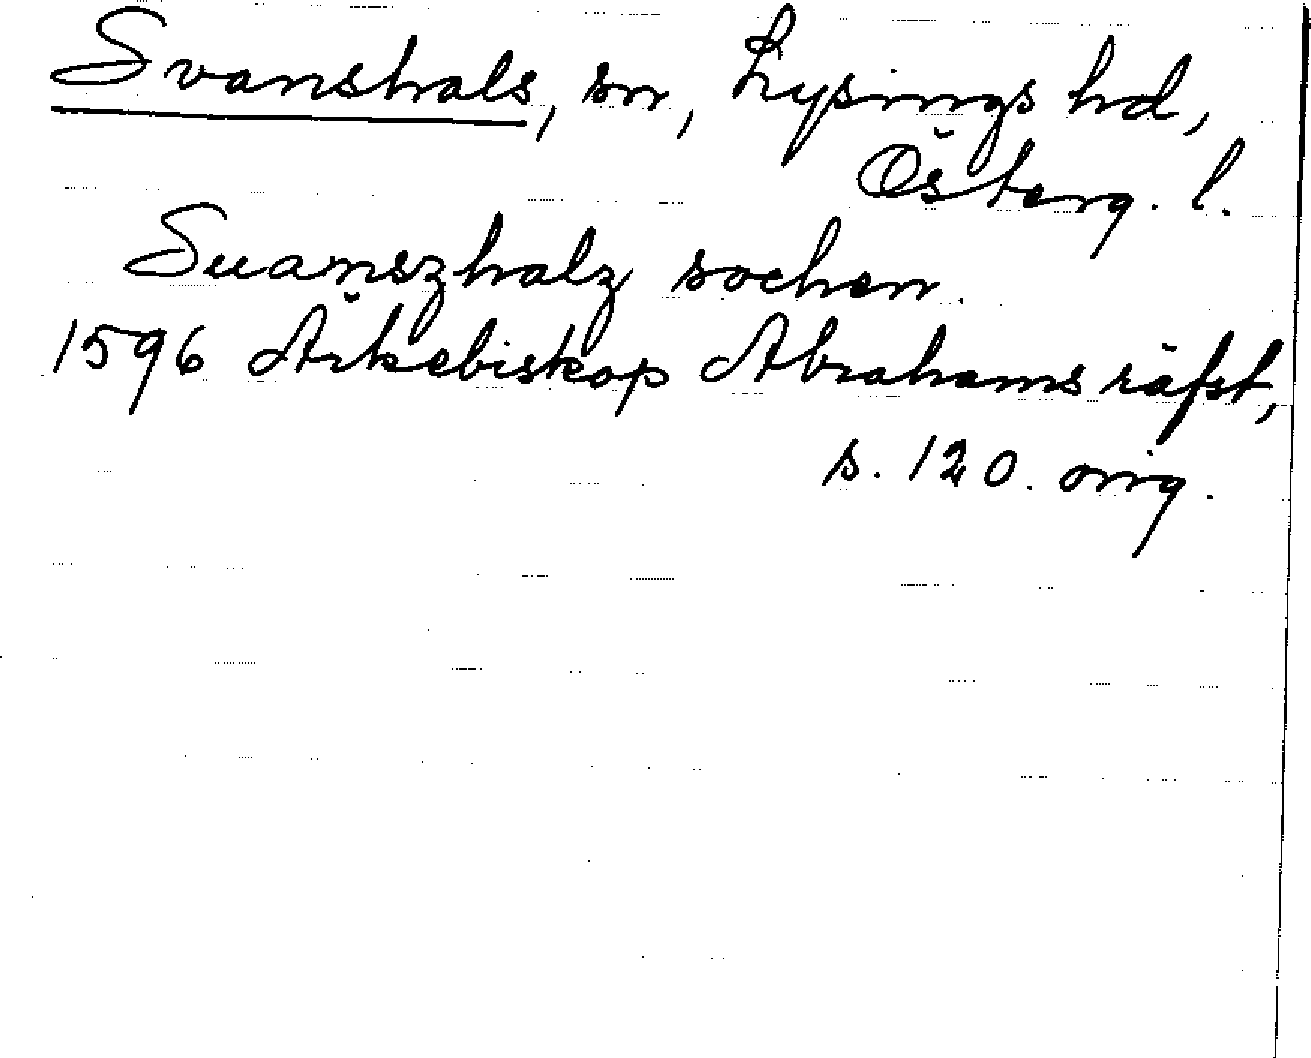 Svanshals, sn, Lysings hd,
Österg. l.
Suanszhalz sochen.
1596 Ärkebiskop Abrahams räfst,
s. 120. orig.